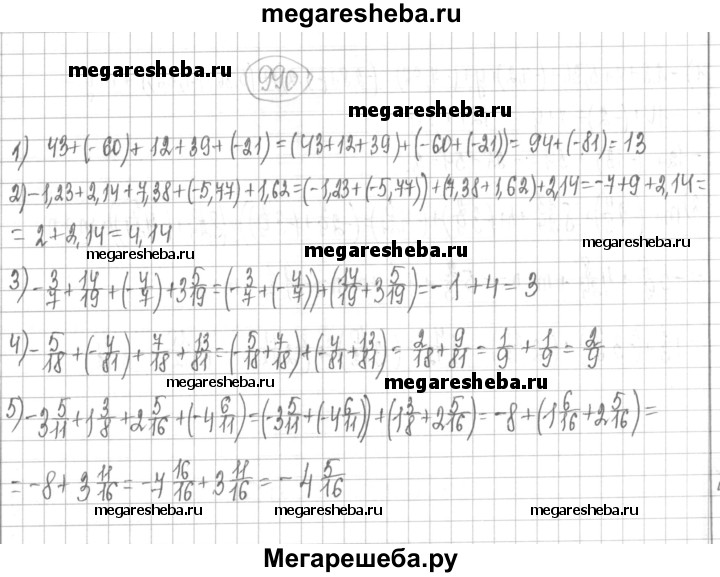 megaresheba.ru
megaresheba.ru
990
megaresheba.ru
1) 43+(-60)+12+39+(-21)=(43+12+39)+(-60+(-21))=94+(-81)=13
2) -1,23+2,14+7,38+(-5,77)+1,62=(-1,23+(-5,77))+(7,38+1,62)+2,14=-7+9+2,14=
=2+2,14=4,14
megaresheba.ru
megaresheba.ru
megaresheba.ru
3) -3/7+14/19+(-4/7)+3 5/19=(-3/7+(-4/7))+(14/19+3 5/19)=-1+4=3
megaresheba.ru
4) -5/18+(-4/81)+7/18+13/81=(-5/18+7/18)+(-4/81+13/81)=2/18+9/81=1/9+1/9=2/9
megaresheba.ru
megaresheba.ru
5) -3 5/11+1 3/8+2 5/16+(-4 6/11)=(-3 5/11+(-4 6/11))+(1 3/8+2 5/16)=-8+(1 6/16+2 5/16)=
=-8+3 11/16=-7 16/16+3 11/16=-4 5/16
megaresheba.ru
megaresheba.ru
megaresheba.ru
Мегарешеба.ру